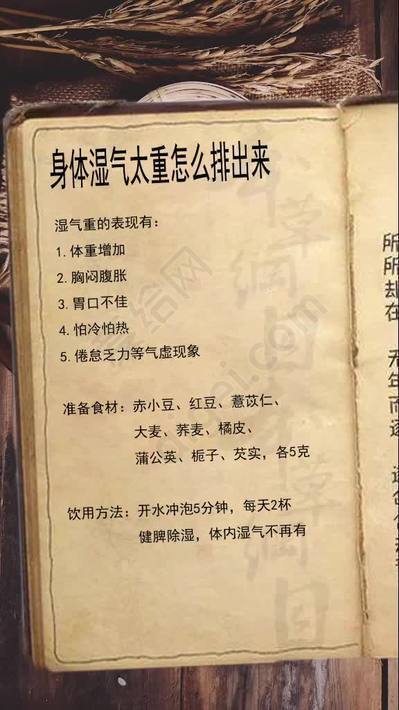 身体湿气太重怎么排出来
湿气重的表现有：
1.体重增加
2.胸闷腹胀
3.胃口不佳
4.怕冷怕热
5.倦怠乏力等气虚现象
准备食材：赤小豆、红豆、薏苡仁、
大麦、荞麦、橘皮、
蒲公英、栀子、芡实，各5克
饮用方法：开水冲泡5分钟，每天2杯
健脾除湿，体内湿气不再有
本草纲目本草纲目
所
所
却
在